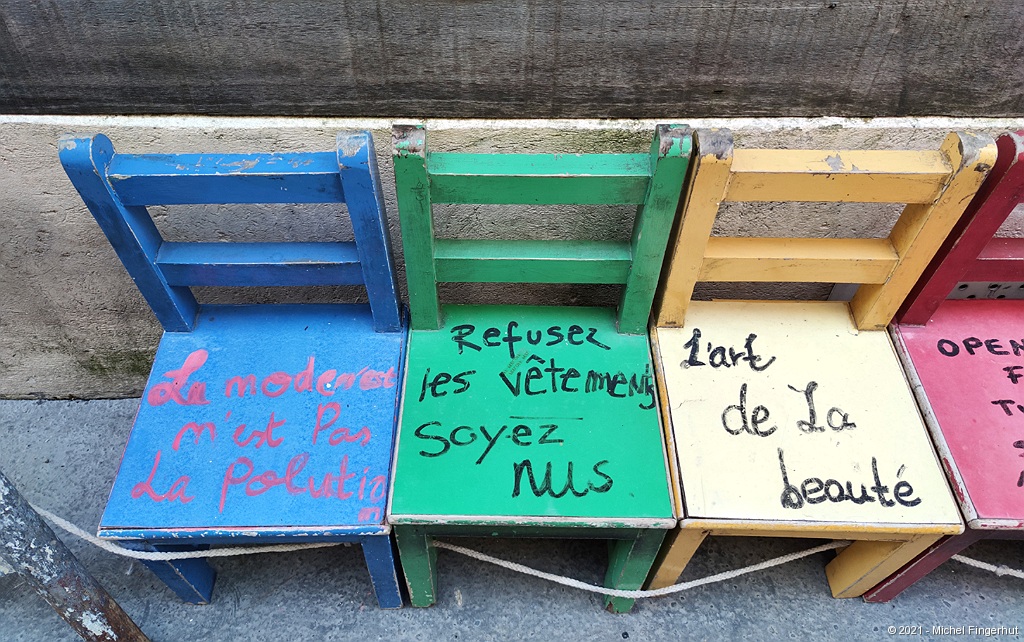 La modernest
n'est Pas
La Polutio
n
Refusez
les vêtements
Soyez
nus
L'art
de La
beauté
OPEN
F
© 2021 - Michel Fingerhut